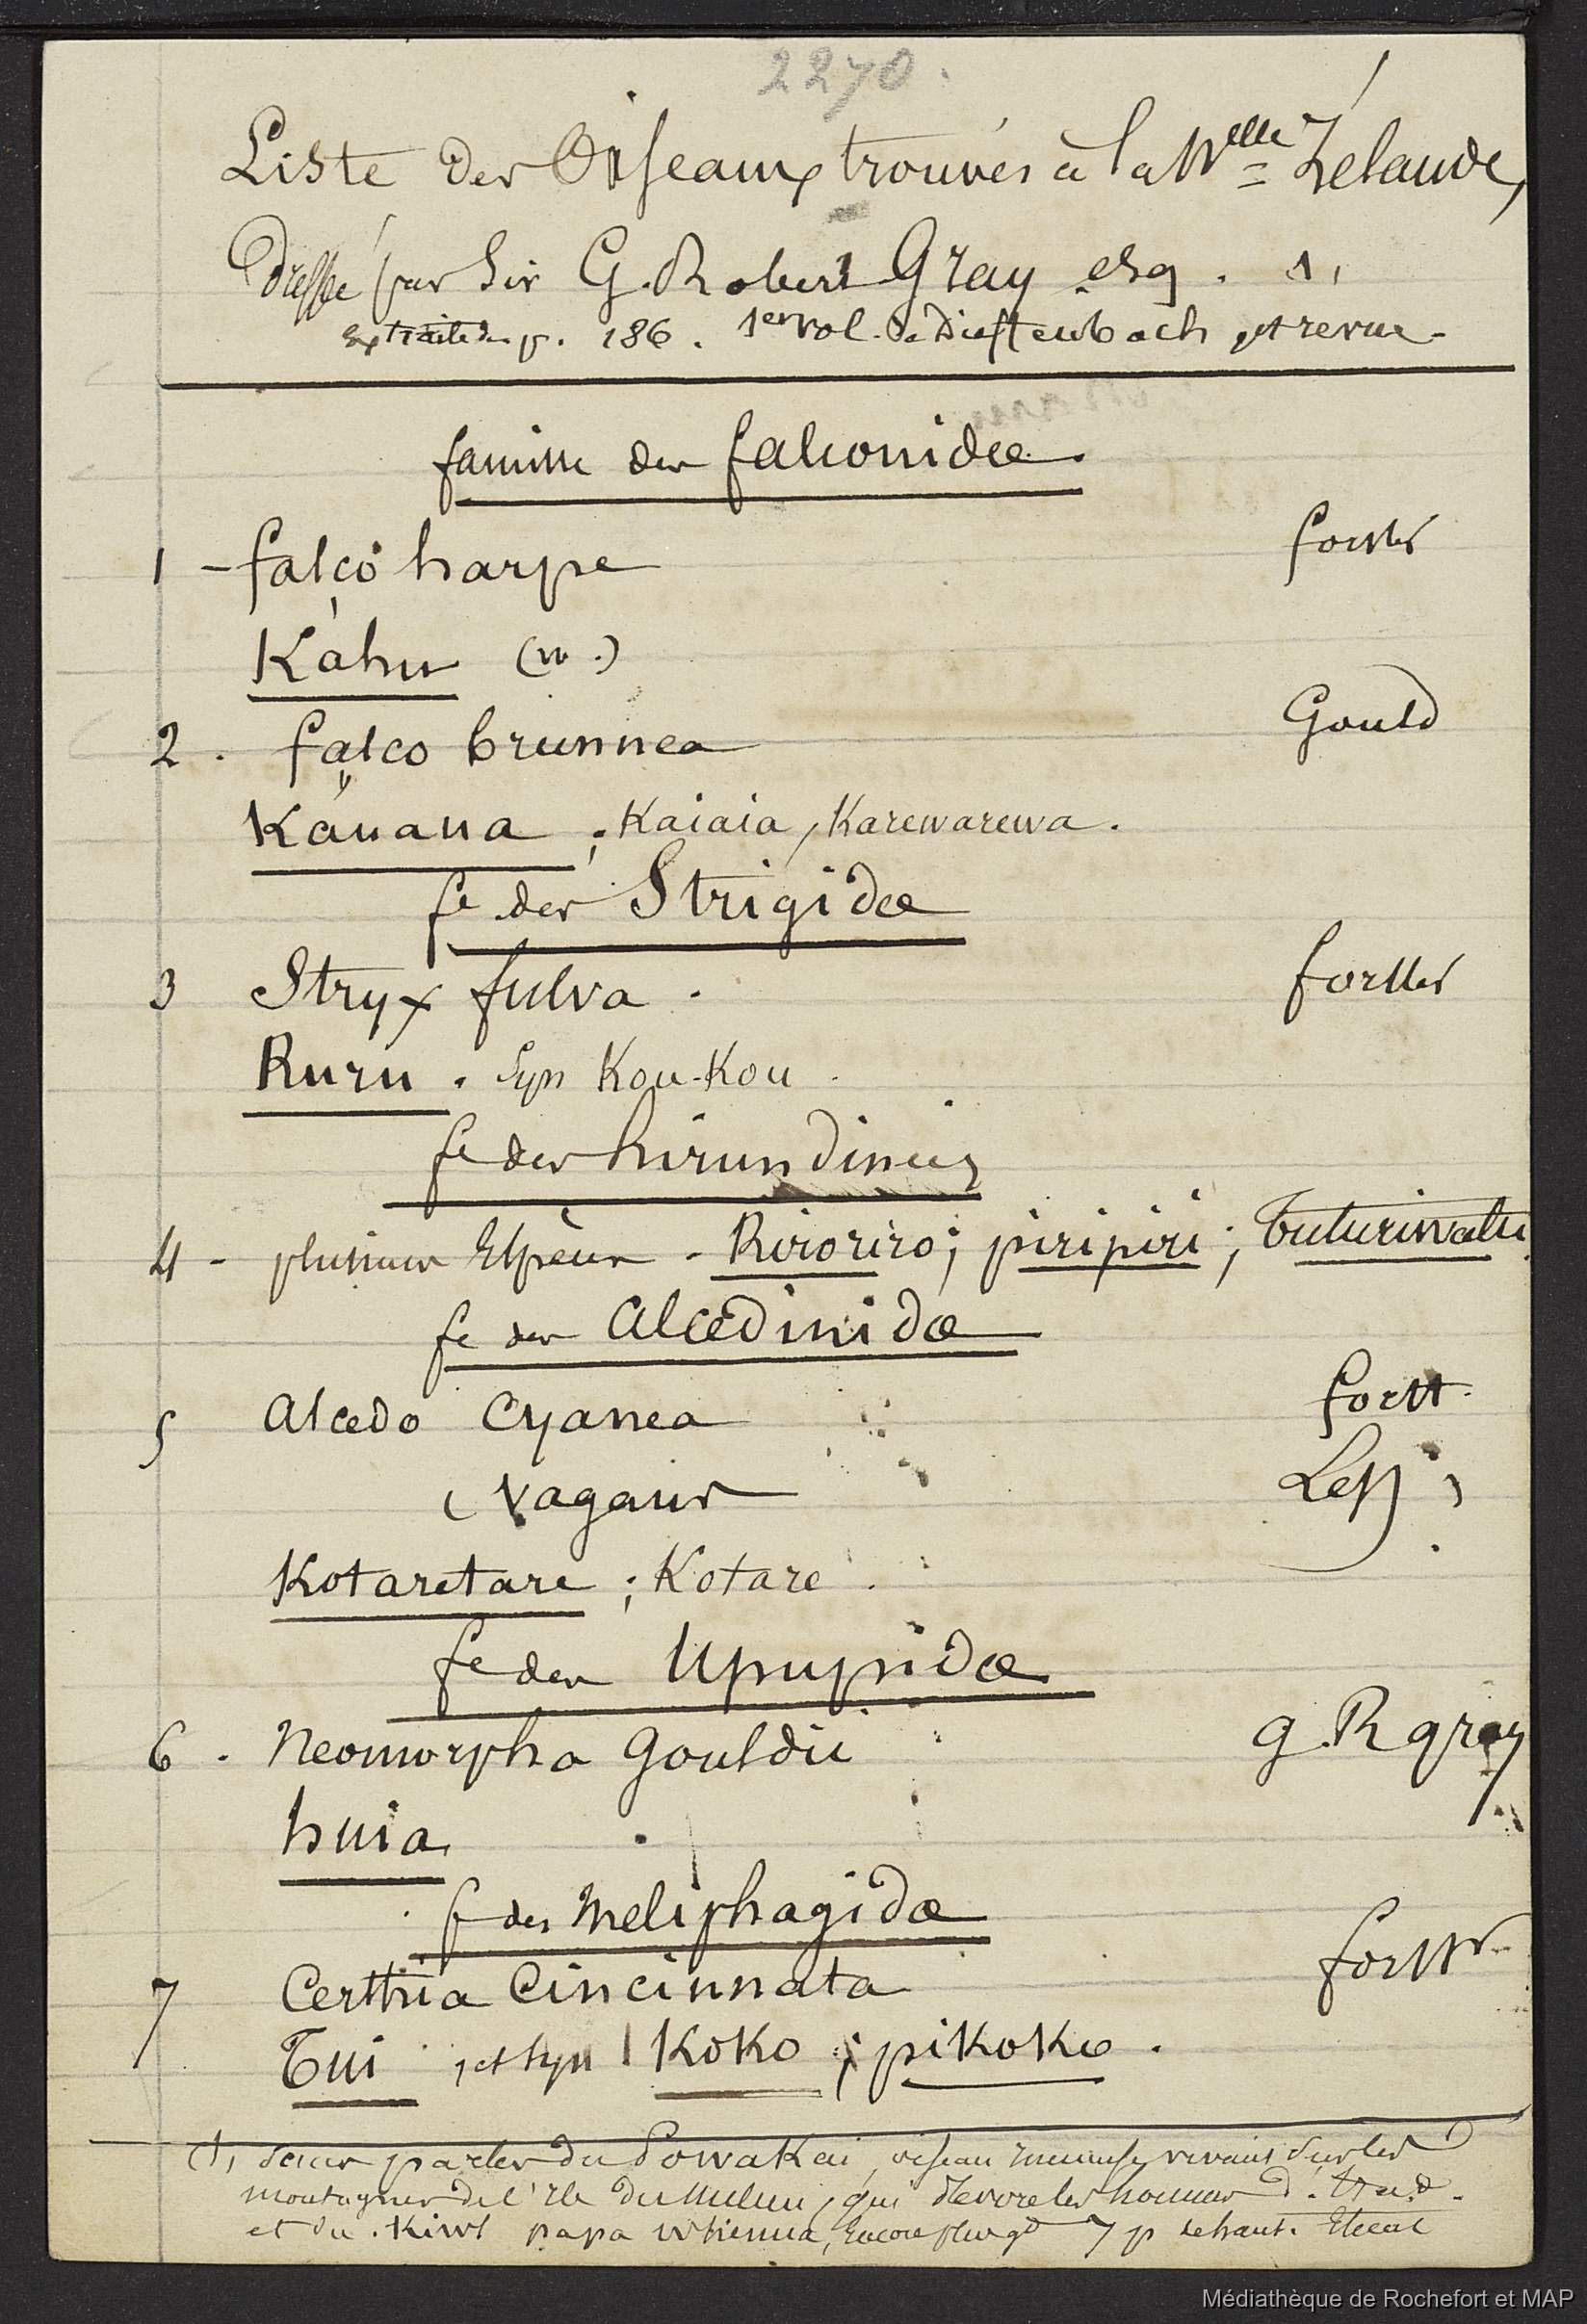 2270.
Liste des Oiseaux trouvés à la Nelle Zélande,
Dressée par Sir G. Robert Gray esq. 1,
extraite du p. 186. 1er vol. de Dieffenbach et revue.
famille des falconidæ.
1 - falco harpe forster
Kahu (n.)
2. falco brunnea Gould
Kauaua; Kaiaia, Karewarewa.
fe des Strigidæ
3 Stryx fulva. forster
Ruru. Syn Kou-Kou.
fe des hirundineis
4 - plusieurs Espèces - Riroriro; piripiri; Tuturiwatu.
fe des alcedinidæ
5 alcedo Cyanea forst.
( vagans Less )
Kotaretare; Kotare.
fe des Upupidæ
6. Neomorpha Gouldii g. R gray
huia
f des Meliphagidæ
7 Certhia Cincinnata forstr
Tui, et syn Koko; pikoko.
(1, sans parler du Powakai, oiseau immense vivant sur les
montagnes de l'Ile du Milieu, qui dévore les hommes d. Trad.
et du Kiwi papa whienua, encore plus gd 7 p de haut.
Médiathèque de Rochefort et MAP